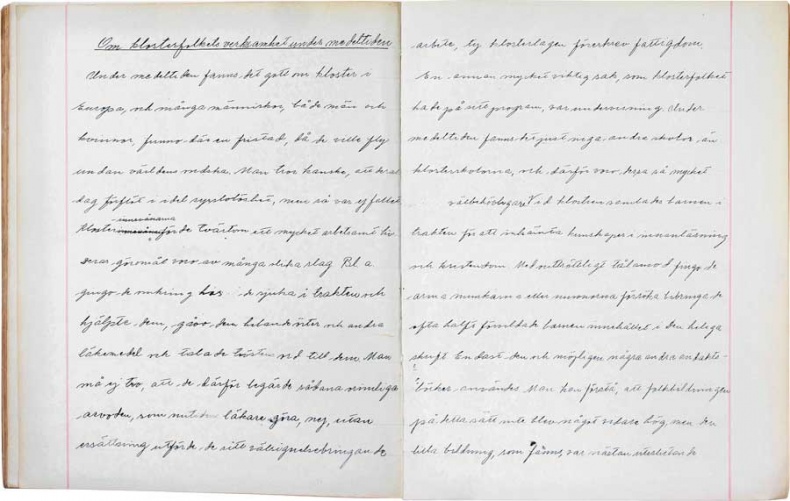 Om klosterfolkets verksamhet under medeltiden
Under medeltiden fanns det gott om kloster i
Europa, och många människor, både män och
kvinnor, funno där en fristad, då de ville fly
undan världens ondska. Man tror kanske, att deras
dag förflöt i idel sysslolöshet, men så var ej fallet
innevånarna
Kloster förde tvärtom ett mycket arbetsamt liv
deras göromål voro av många olika slag Bl a
gingo de omkring hos de sjuka i trakten och
hjälpte dem, gåvo dem helande örter och andra
läkemedel och talade trösten ord till dem. Man
må ej tro, att de därför begärde sådana orimliga
arvoden, som nutidens läkare göra, nej, utan
ersättning utförde de sitt välsignelsebringande
arbete, ty klosterlagen föreskrev fattigdom.
En annan mycket viktig sak, som klosterfolket
hade på sitt program, var undervisning. Under
medeltiden fanns det just inga andra skolor, än
klosterskolorna, och därför voro dessa så mycket
välbehövligare. Vid klostren samlades barnen i
trakten för att inhämta kunskaper i innanläsning
och kristendom Med outtröttligt tålamod fingo de
arma munkarna eller nunnorna försöka bibringa de
ofta halft förvildade barnen innehållet i den heliga
skrift Endast den och möjligen några andra andakts-
böcker användes Man kan förstå, att folkbildningen
på detta sätt inte blev något vidare hög men den
lilla bildning, som fanns, var nästan uteslutande